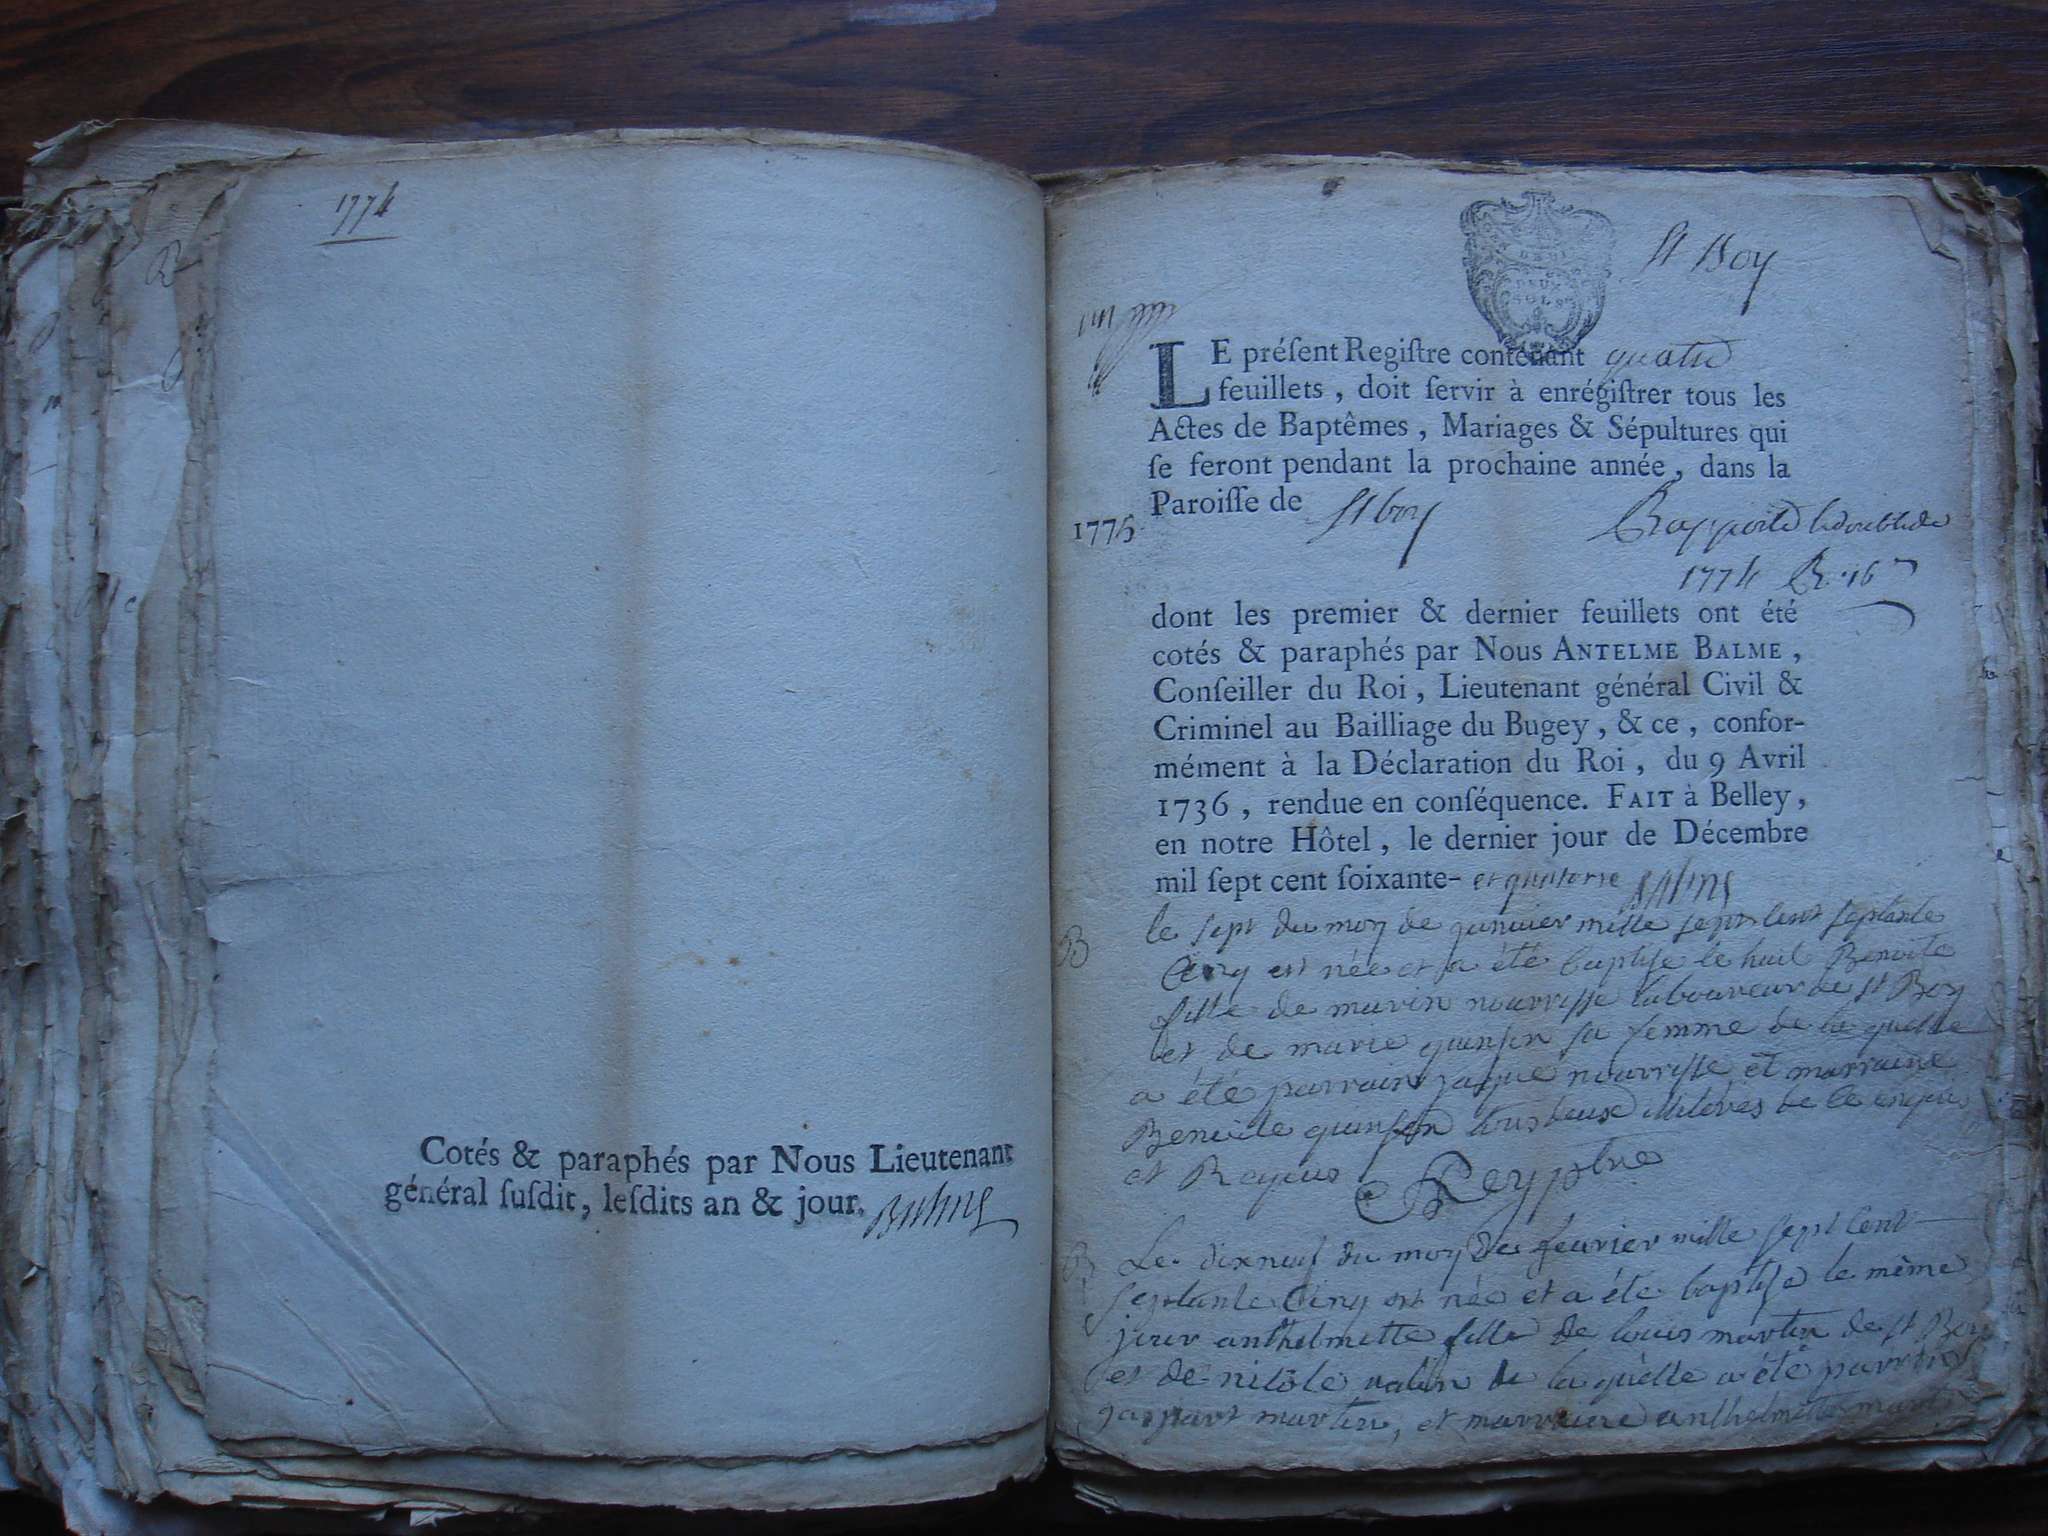 1774
Cotés & paraphés par Nous Lieutenant
général ſuſdit, leſdits an & jour. Balme
St Boy
DEUX
SOLS
LE préſent Regiſtre contenant quatre
feuillets, doit ſervir à enrégiſtrer tous les
Actes de Baptêmes, Mariages & Sépultures qui
ſe feront pendant la prochaine année, dans la
Paroiſſe de St boy
1775
Rapporté le double de
1774
dont les premier & dernier feuillets ont été
cotés & paraphés par Nous ANTELME BALME,
Conſeiller du Roi, Lieutenant général Civil &
Criminel au Bailliage du Bugey, & ce, confor-
mément à la Déclaration du Roi, du 9 Avril
1736, rendue en conſéquence. FAIT à Belley,
en notre Hôtel, le dernier jour de Décembre
mil ſept cent ſoixante- et quatorze Balme
B
le sept du moy de janvier mille sept cent septante
Cinq est née et a été baptise le huit Benoite
fille de marin nourrisse laboureur de st Boy
et de marie quinson sa femme de la quelle
a été parrain jaque nourrisse et marraine
Benoite quinson tous deux illitérés de ce enquis
et Requis Rey ptre
B
Le dixneuf du moy de fevrier mille sept cent
septante Cinq est née et a été baptise le même
jour anthelmette fille de louis martin de st Boy
et de nicole de la quelle a été parrain
gaspart martin, et marraine anthelmette martin